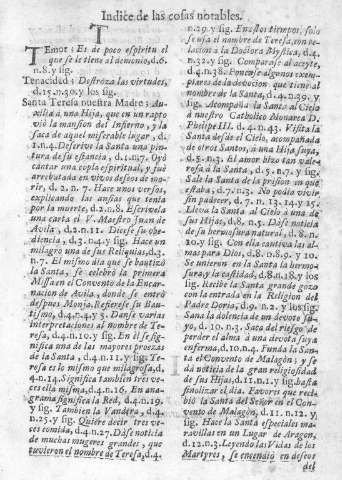 Indice de las cosas notables.
TEmor: Es de poco espiritu el
que se le tiene al demonio, d.6.
n.8. y sig.
Tenacidad: Destroza las virtudes,
d.15.n.30. y los sig.
Santa Teresa nuestra Madre: Au-
xilia à una Hija, que en un rapto
viò la mansion del Infierno, y la
saca de aquel miserable lugar, d.
1.n.4. Descrive la Santa una pin-
tura de su estancia, d.1.n.7. Oyò
cantar una copla espiritual, y fuè
arrebatada en vivos deseos de mo-
rir, d. 2. n. 7. Hace unos versos,
explicando las ansias que tenia
por la muerte, d.2.n.8. Escrivela
una carta el V. Maestro Juan de
Avila, d.2.n.11. Dicese su obe-
diencia, d.3.n.4. y sig. Hace un
milagro una de sus Reliquias, d.3.
n.7. El mismo dia que se bautizò
la Santa, se celebrò la primera
Missa en el Convento de la Encar-
nacion de Avila, donde se entrò
despues Monja. Refierese su Bau-
tismo, d.4.n.4.y 5. Danse varias
interpretaciones al nombre de Te-
resa, d.4.n.10. y sig. En èl se sig-
nifica una de las mayores proezas
de la Santa, d.4.n.11. y sig. Te-
resa es lo mismo que milagrosa, d.
4.n.14. Significa tambien tres ve-
ces ella misma, d.4.n.16. En ana-
grama significa la Red, d.4.n.19.
y sig. Tambien la Vandera, d.4.
n.25. y sig. Quiere decir tres ve-
ces comida, d.4.n.27. Dàse noticia
de muchas mugeres grandes, que
tuvieron el nombre de Teresa, d.4.
n.29. y sig. En estos tiempos, solo
se usa el nombre de Teresa, con re-
lacion à la Doctora Mystica, d.4.
n.32. y sig. Comparase al aceyte,
d.4.n.38. Ponense algunos exem-
plares de la devocion que tiene al
nombre de la Santa, d.4.n.39. y
sig. Acompaña la Santa al Cielo
à nuestro Catholico Monarca D.
Phelipe III. d.4.n.43. Visita la
Santa desde el Cielo, acompañada
de otros Santos, à una Hija suya,
d.5.n.3. El amor hizo tan vale-
rosa à la Santa, d.5.n.7. y sig.
Sale la Santa de la prision en que
estaba, d.7.n.3. No podia vivir
sin padecer, d.7. n. 13. 14. y 15.
Lleva la Santa al Cielo à una de
sus Hijas, d.8. n.5. Dàse noticia
de su hermosura natural, d.8. n.
10. y sig. Con ella cautiva las al-
mas para Dios, d.8. n.8.9. y 10.
Se unieron en la Santa la hermo-
sura, y la castidad, d.8.n.18.y los
sig. Recibe la Santa grande gozo
con la entrada en la Religion del
Padre Doria, d.9. n.2. y los sig.
Sana la dolencia de un devoto su-
yo, d. 10. n.3. Saca del riesgo de
perder el alma à una devota suya
enferma, d.10.n.4. Funda la San-
ta el Convento de Malagòn; y se
dà noticia de la gran religiosidad
de sus Hijas, d.11.n.1.y sig. hasta
finalizar el dia. Favores que reci-
biò la Santa del Señor en el Con-
vento de Malagòn, d.11. n.12. y
sig. Hace la Santa especiales ma-
ravillas en un Lugar de Aragon,
d.12.n.3. Leyendo las Vidas de los
Martyres, se encendiò en deseos
del